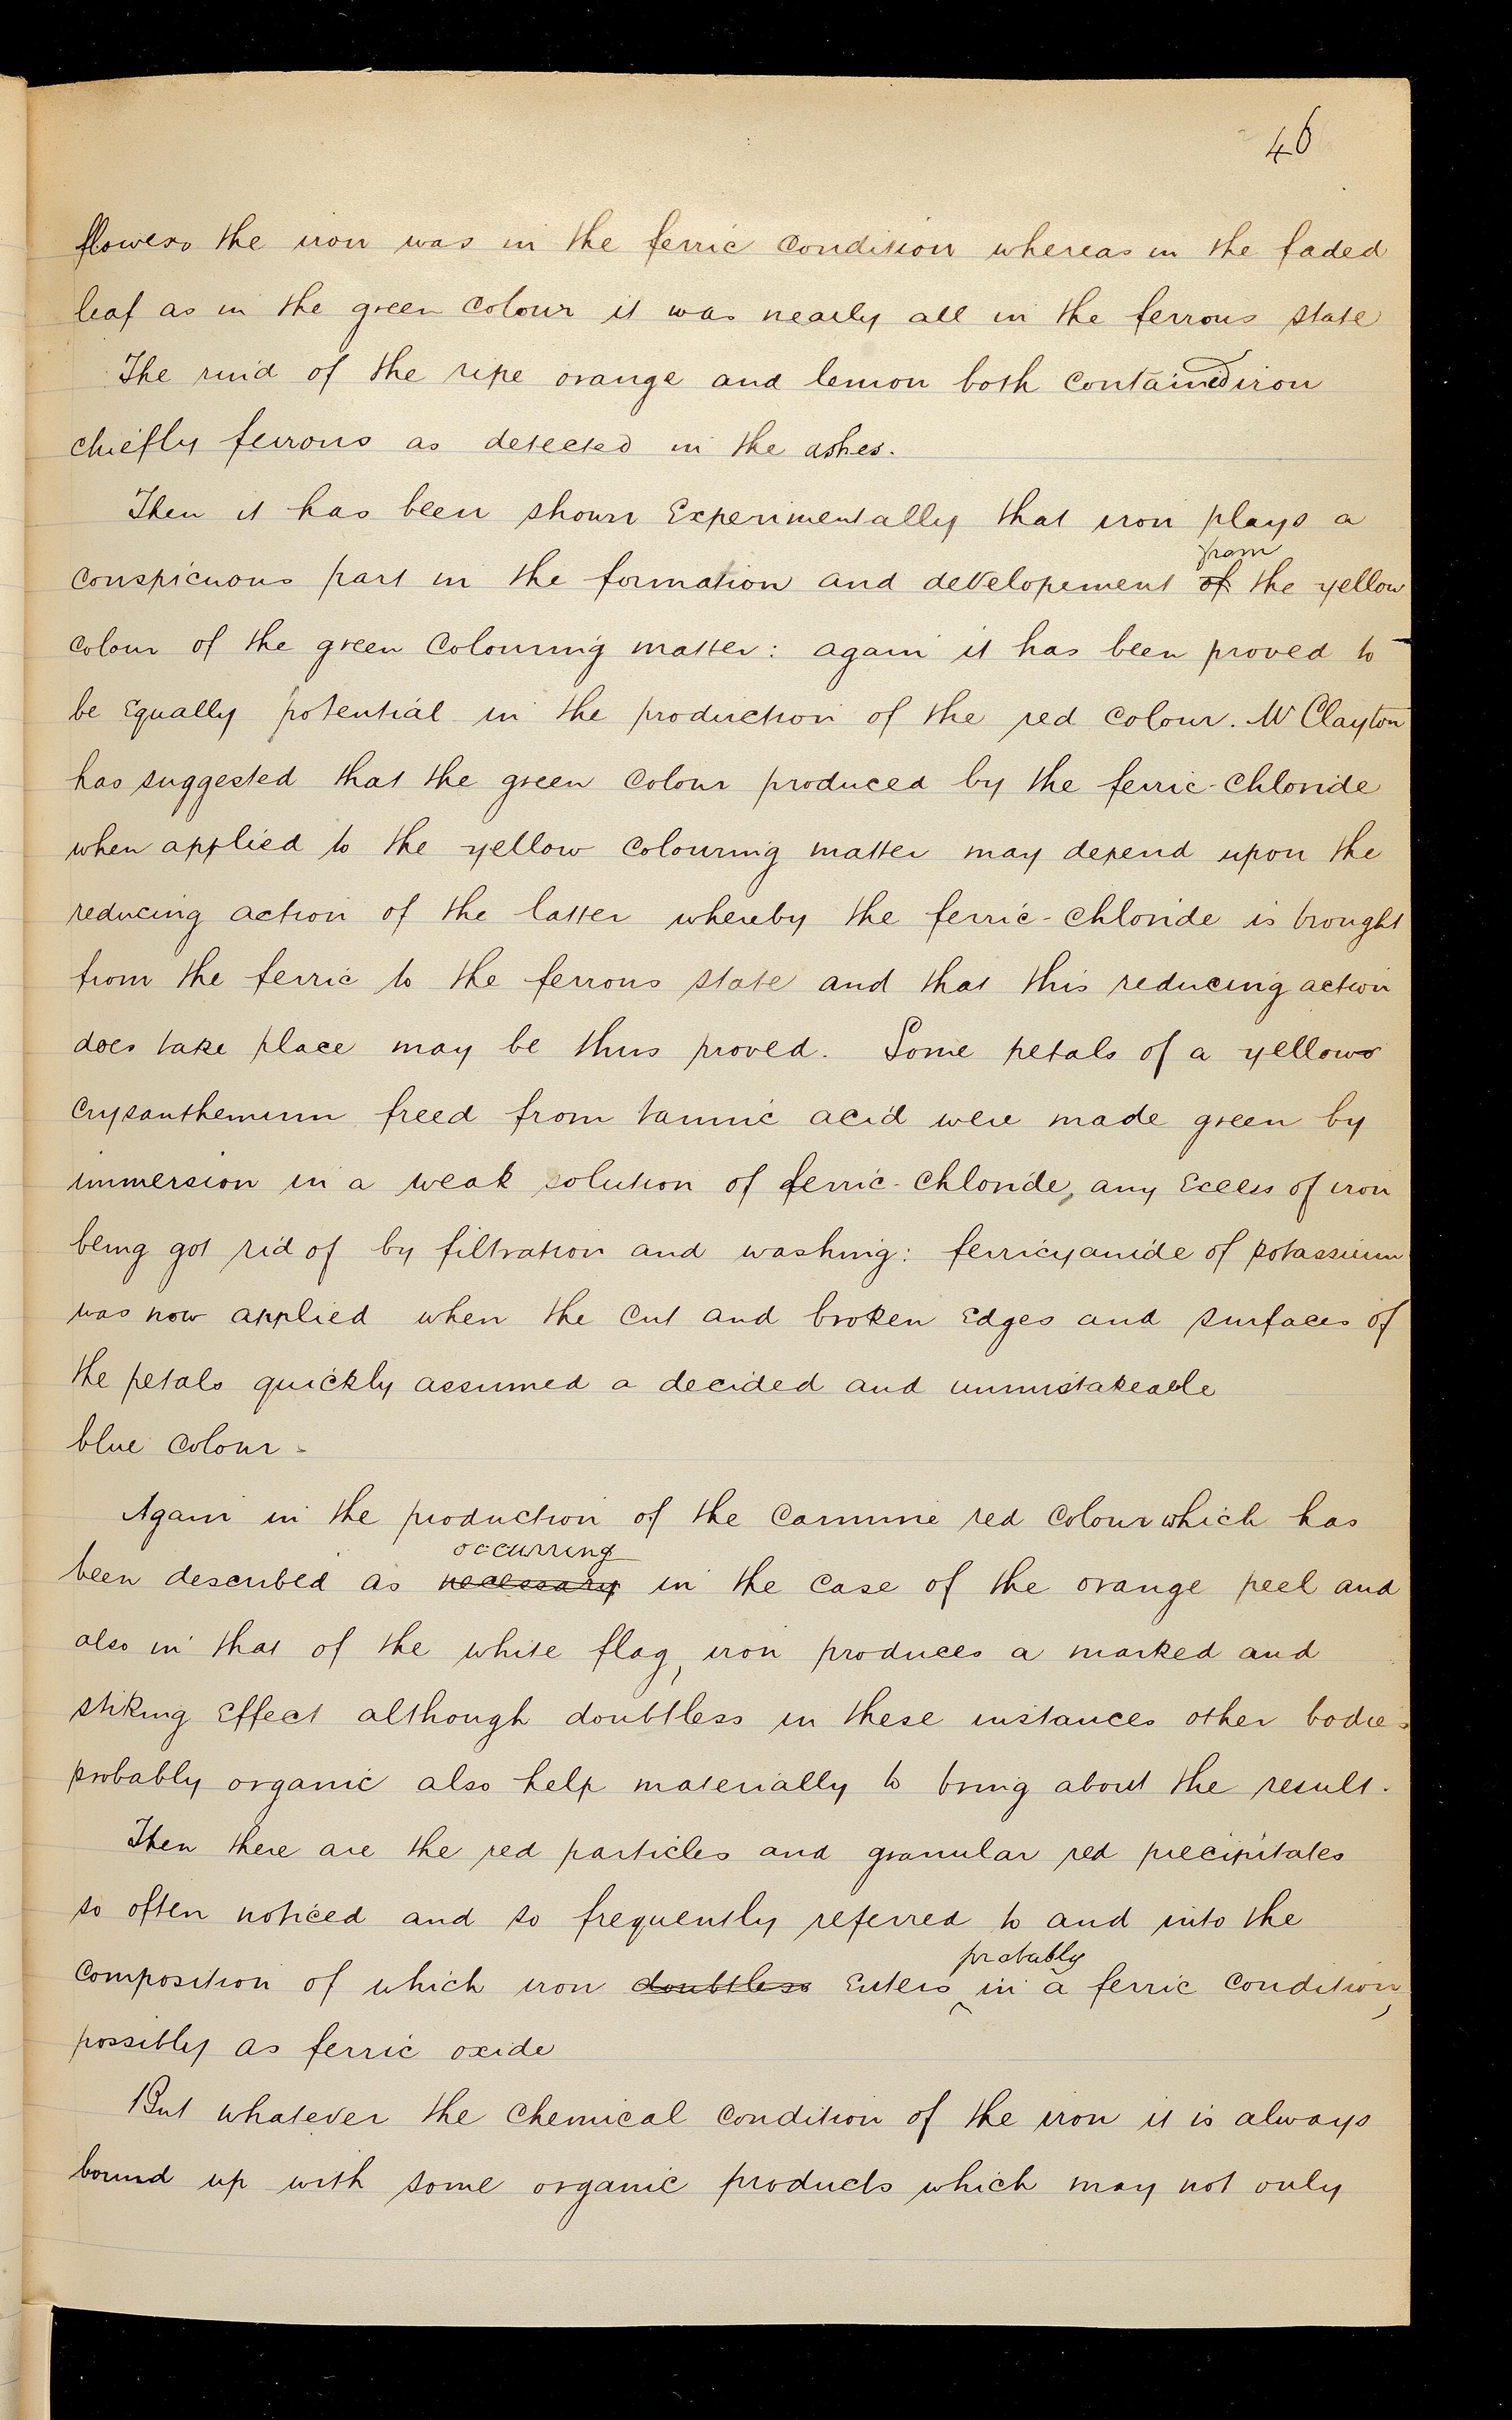 46
flowers the iron was in the ferric condition whereas in the faded
leaf as in the green colour it was nearly all in the ferrous state
The rind of the ripe orange and lemon both contained iron
chiefly ferrous as detected in the ashes.
Then it has been shown Experimentally that iron plays a
from
conspicuous part in the formation and developement of the yellow
colour of the green colouring matter: again it has been proved to
be Equally potential in the production of the red colour. Mr Clayton
has suggested that the green colour produced by the ferric-chloride
when applied to the yellow colouring matter may depend upon the
reducing action of the latter whereby the ferric-chloride is brought
from the ferric to the ferrous state and that this reducing action
does take place may be thus proved. Some petals of a yellow
crysanthemum freed from tannic acid were made green by
immersion in a weak solution of ferric-chloride, any Excess of iron
being got rid of by filtration and washing: ferricyanide of potassium
was now applied when the cut and broken Edges and surfaces of
the petals quickly assumed a decided and unmistakeable
blue colour.
Again in the production of the carmine red colour which has
occurring
been described as necessary in the case of the orange peel and
also in that of the white flag, iron produces a marked and
stiking Effect although doubtless in these instances other bodies
probably organic also help materially to bring about the result.
Then there are the red particles and granular red precipitates
so often noticed and so frequently referred to and into the
probably
composition of which iron doubtless Enters in a ferric condition,
possibly as ferric oxide
But whatever the chemical condition of the iron it is always
bound up with some organic products which may not only